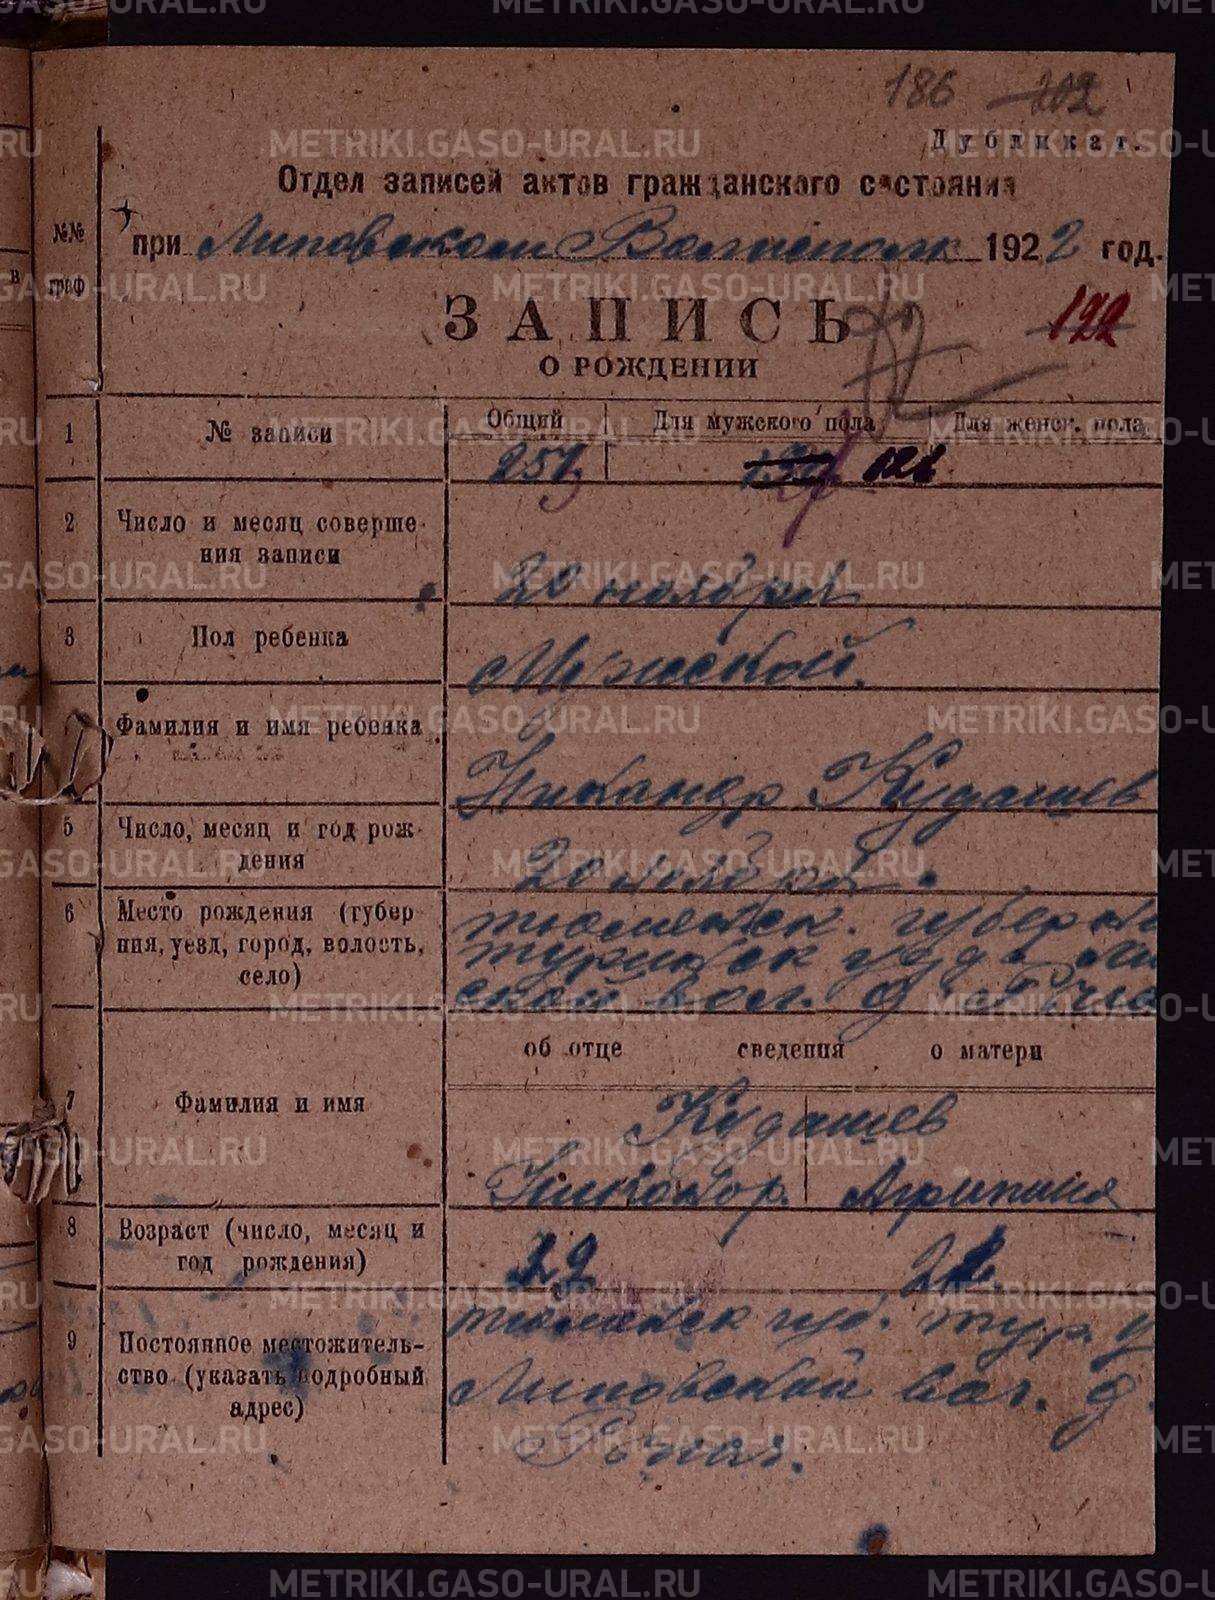 186 202
Дубликат.
Отдел записей актов гражданского состояния
№№ граф
при Липовском Волисполк 1922 год.
ЗАПИСЬ
122
О РОЖДЕНИИ
1 № записи Общий Для мужского пола Для женск. пола.
121
2 Число и месяц соверше-
ния записи
20 ноября
3 Пол ребенка Мужской.
Фамилия и имя ребенка
Никандр Кудашев
5 Число, месяц и год рож-
дения
20 ноября.
6 Место рождения (губер
ния, уезд, город, волость,
село)
тюменск. губерни
туринск уезда Ли
ской вол. д.
об отце сведения о матери
7 Фамилия и имя
Кудашев
Никанор. Агрипина
8 Возраст (число, месяц и
год рождения)
29
9 Постоянное местожитель-
ство (указать подробный
адрес)
тюменск губ. тур. у
Липовской вол. д.
METRIKI.GASO-URAL.RU